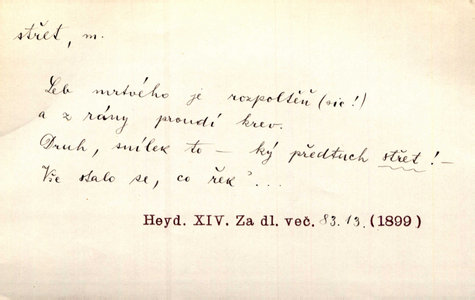 střet, m.
Leb mrtvého je rozpoltěn (sic!)
a z rány proudí krev.
Druh, snílek to – ký předtuch střet! –
Vše stalo se, co řek'...
Heyd. XIV. Za dl. več. 83.13. (1899)